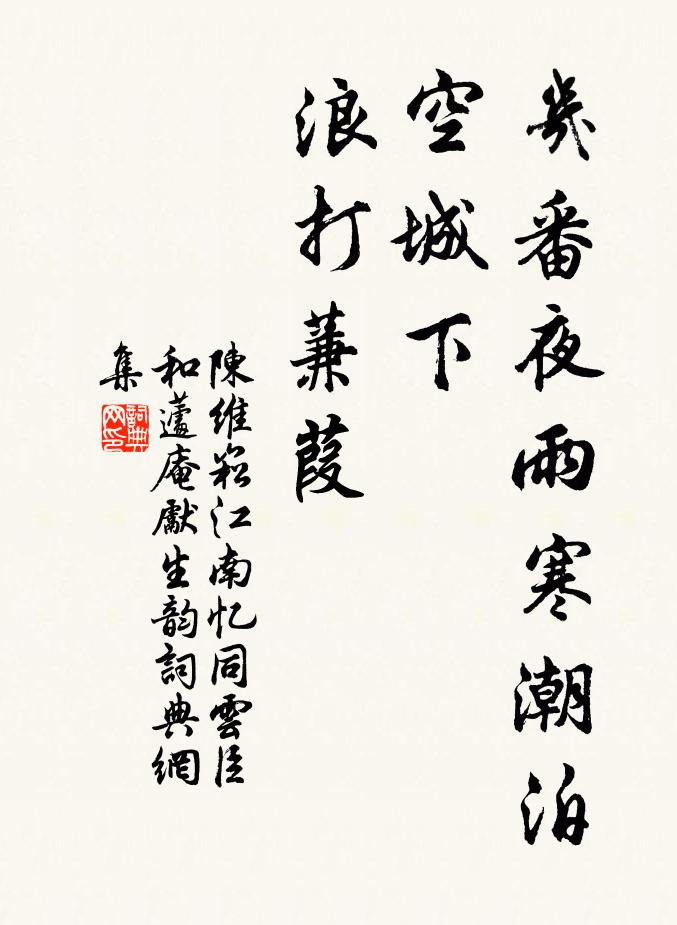 幾番夜雨寒潮泊
空城下
浪打蒹葭
陳維崧江南忆同雲臣
和蘧庵獻生韵詞典網
集
詞典
网印